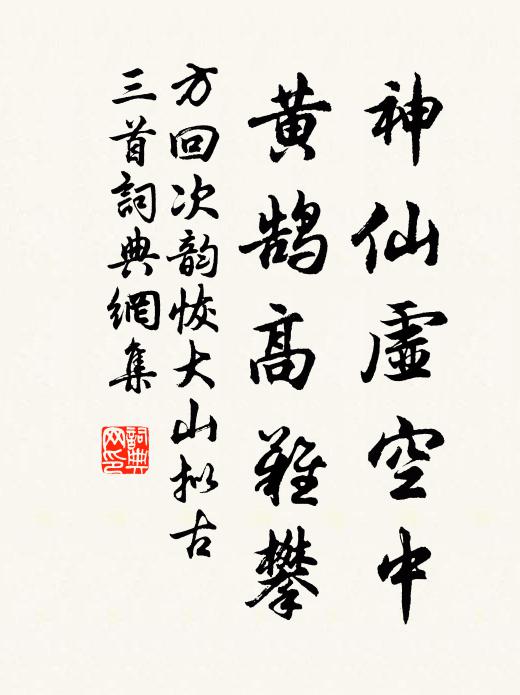 神仙虛空中
黃鹄高難攀
方回次韵恢大山拟古
三首詞典網集
詞典
网印